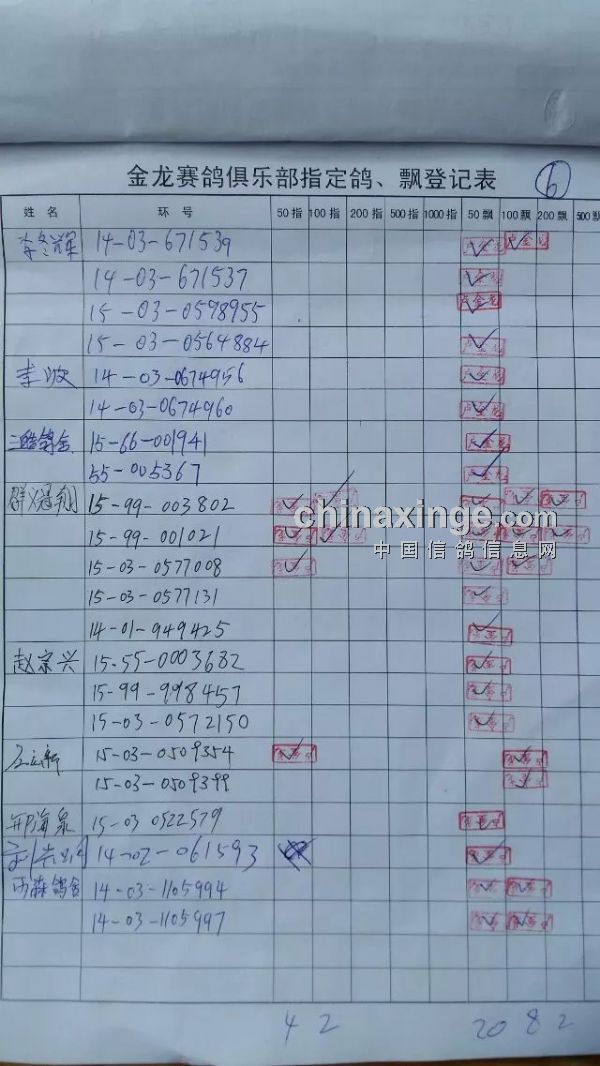 金龙赛鸽俱乐部指定鸽、飘登记表 6
姓名 环号 50指 100指 200指 500指 1000指 50飘 100飘 200飘 500飘
李冬辉 14-03-671539
14-03-671537
15-03-0598955
15-03-0564884
李波 14-03-0674956
14-03-0674960
15-66-001941
55-005367
15-99-003802
15-99-001021
15-03-0577008
15-03-0577131
14-01-949425
赵宗兴 15-55-0003682
15-99-998457
15-03-0572150
15-03-0509354
15-03-0509399
邢海泉 15-03 0522579
14-02-061593
雨森鸽舍 14-03-1105994
14-03-1105997
4 2 20 8 2
chinaxinge.com
中国信鸽信息网